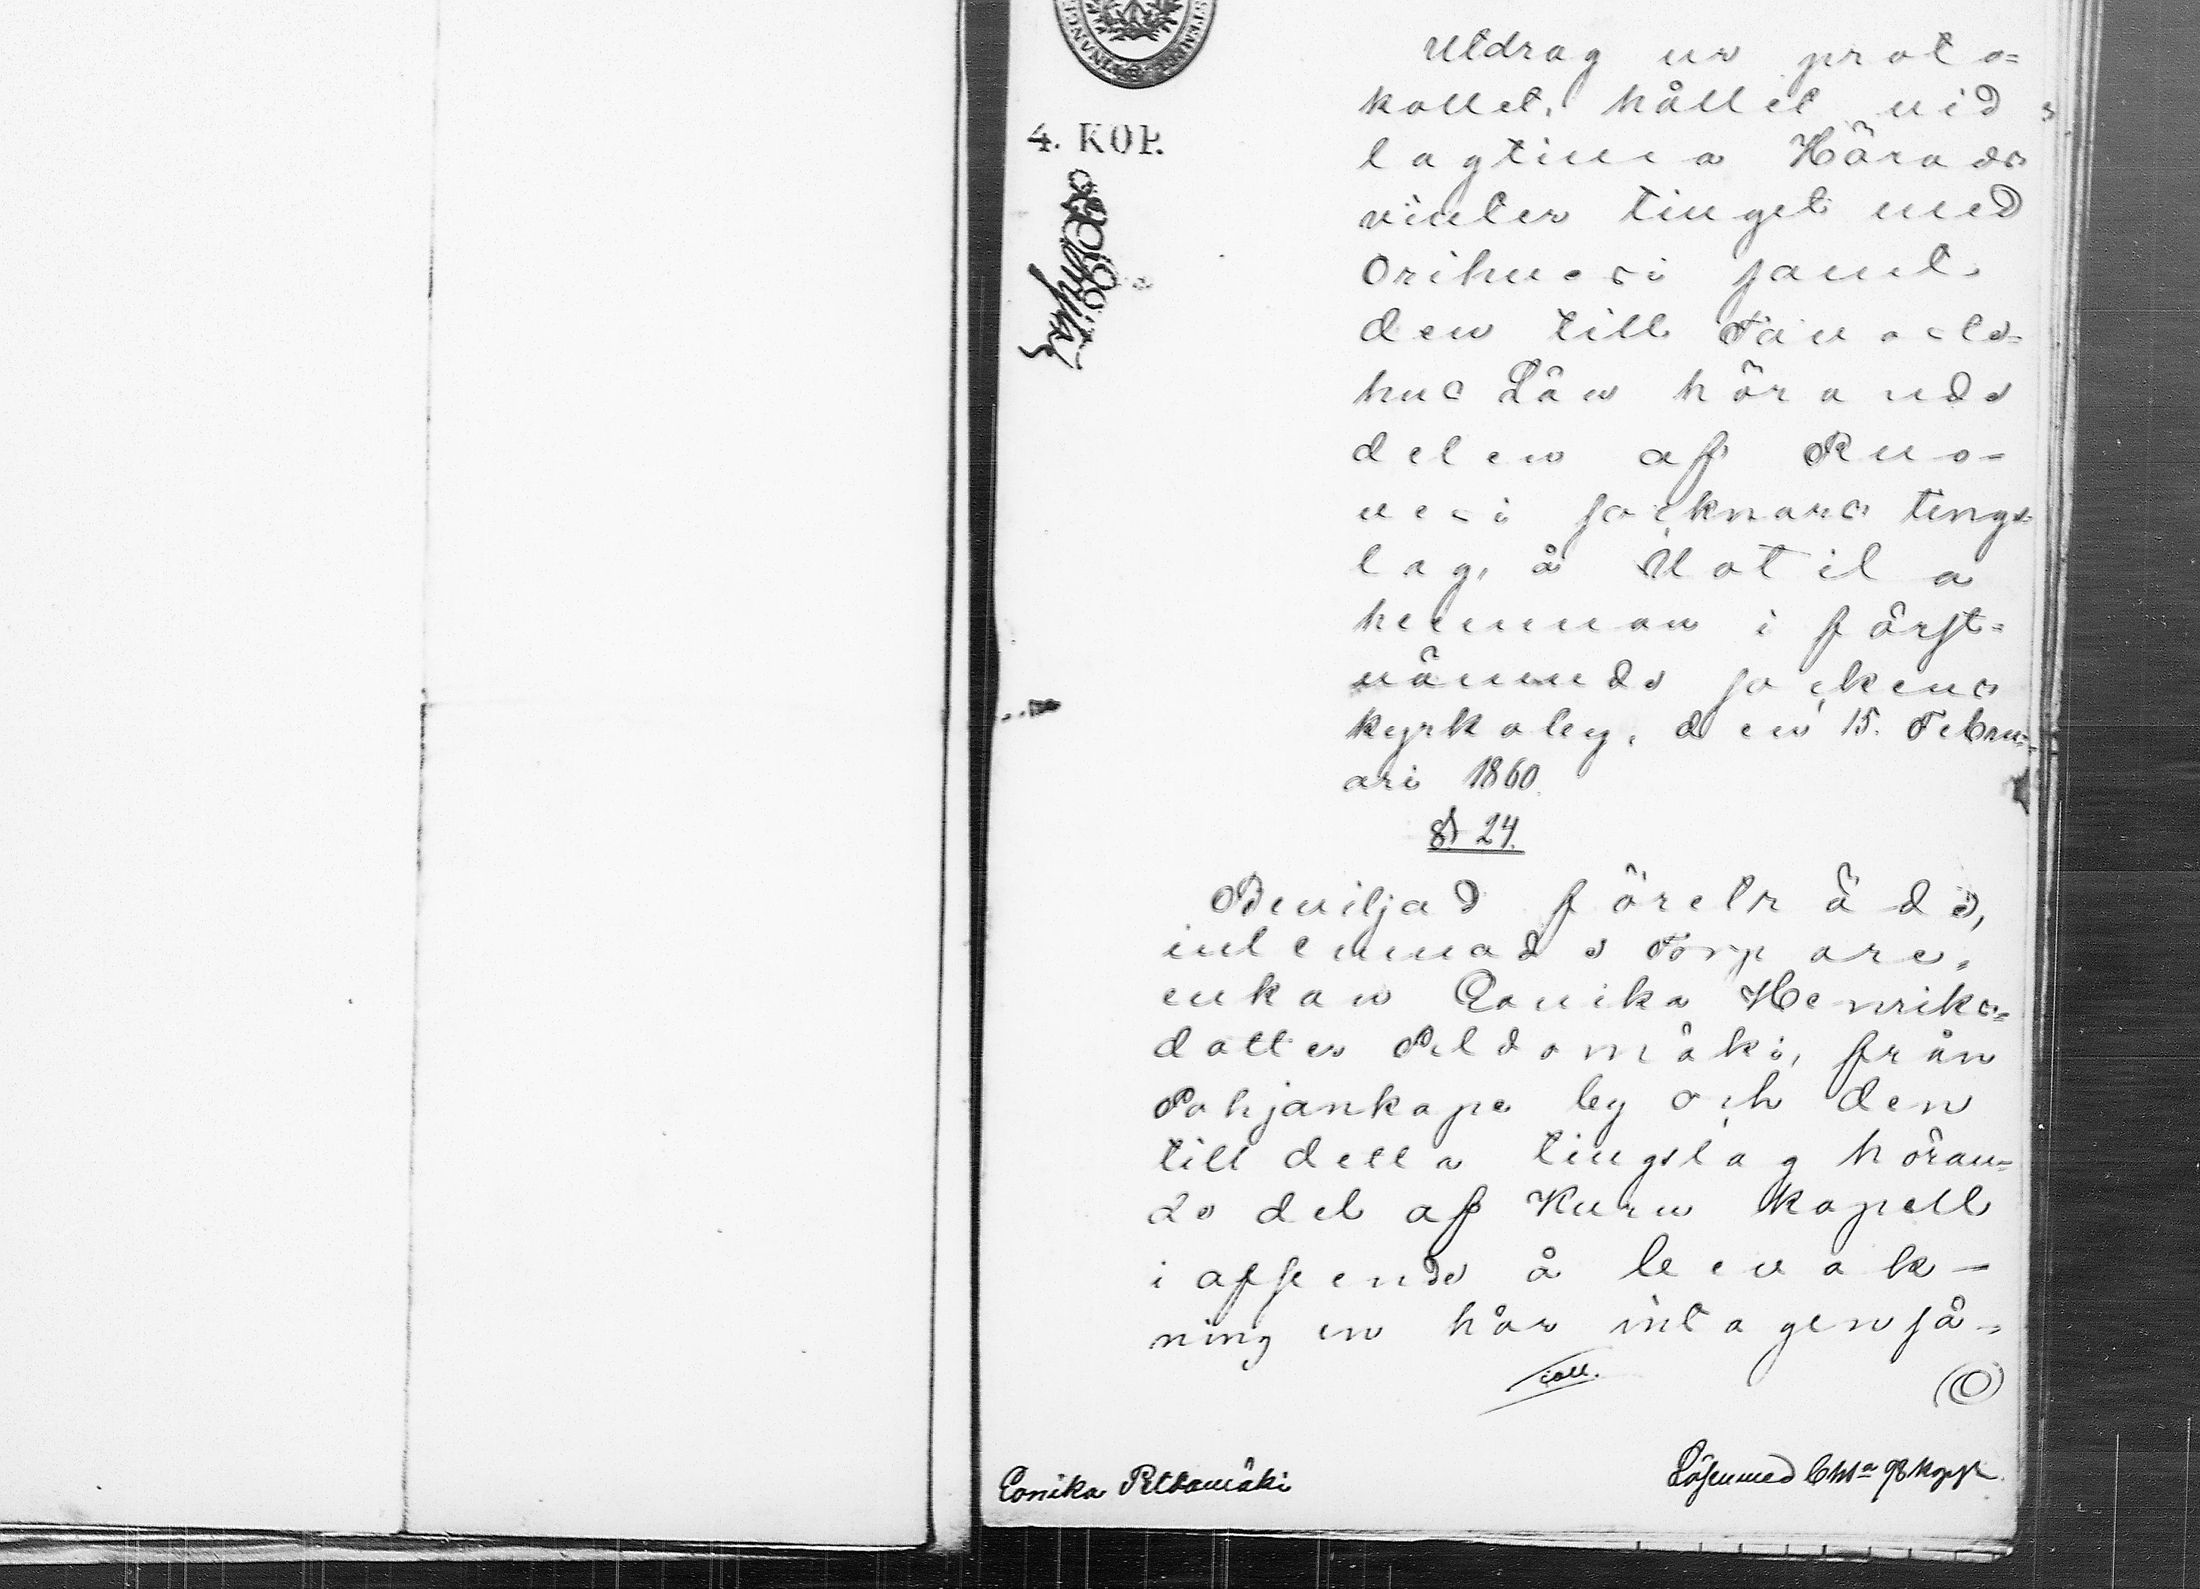 4. KOP.
Utdrag ur proto=
kollet, hållet vid
lagtima Härads
vinter tinget med
Orihvesi samt
den till Tavaste=
hus Län hörande
delen af Ruo-
vesi socknars tings=
lag, å Uotila
hemman i först=
nämnde sockens
kyrkoby, den 15. Febru=
ari 1860.
§ 24.
Beviljad företräde,
inlemnade Torpare=
enkan Eonika Henriks=
dotter Peldomäki, från
Pohjankapee by och den
till detta tingslag höran=
de del af Kuru kapell
i afseende å bevak-
ning en här intagen så=
coll.
Eonika Peldomäki
Lösen med kopp.